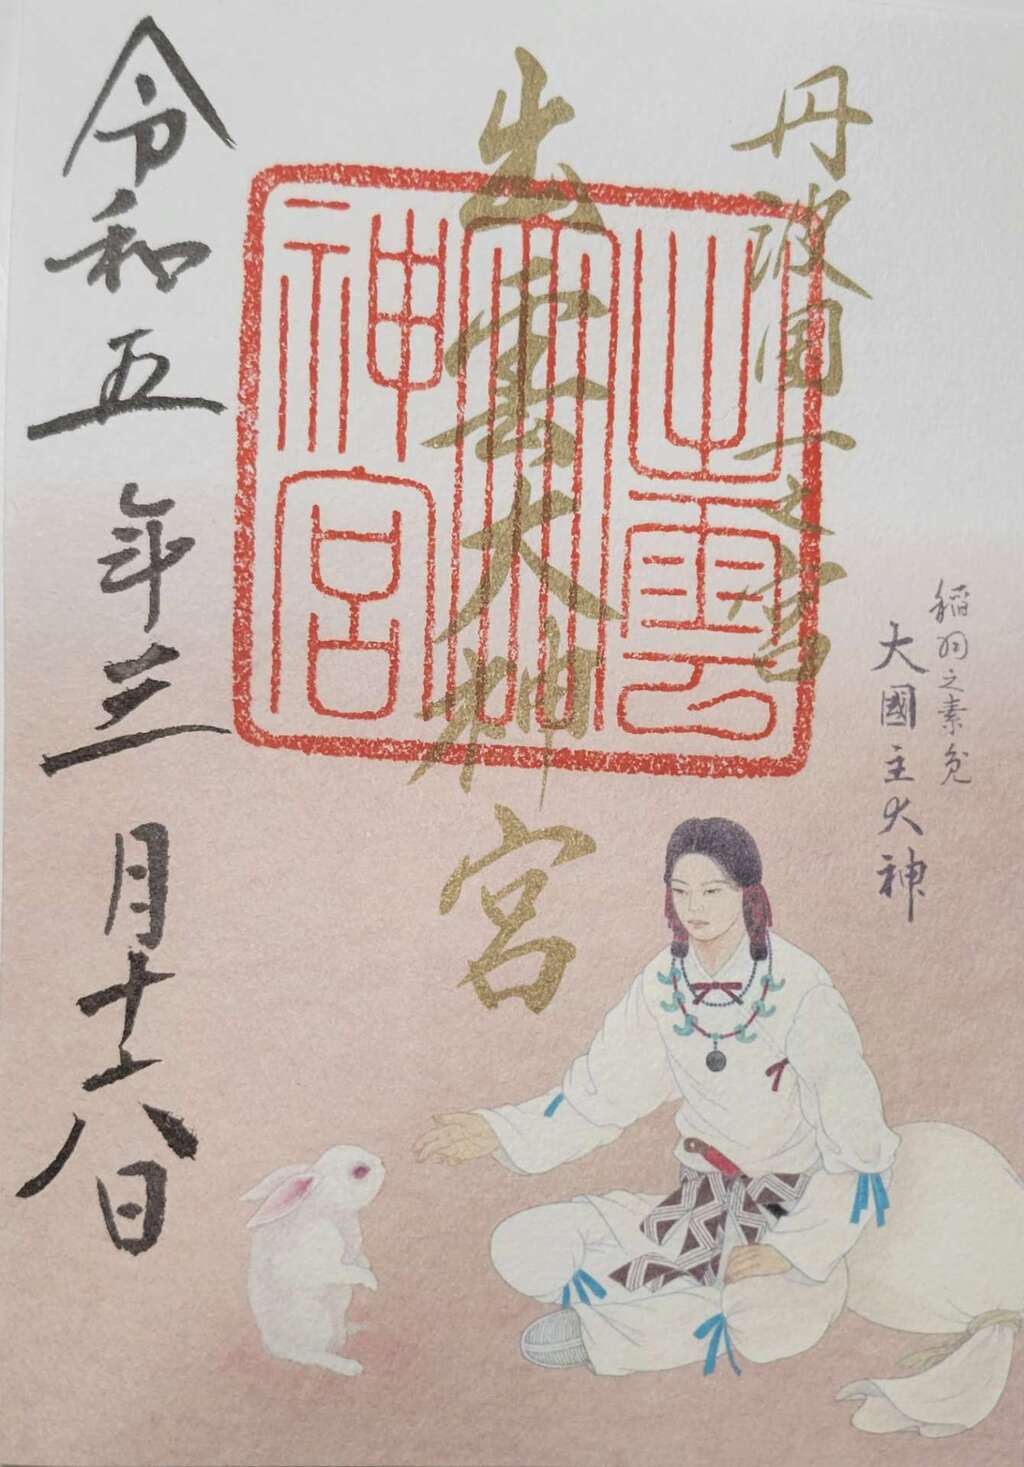 丹波国一之宮
出雲大神宮
出雲大神宮
稲羽之素兎
大國主大神
令和五年三月十八日